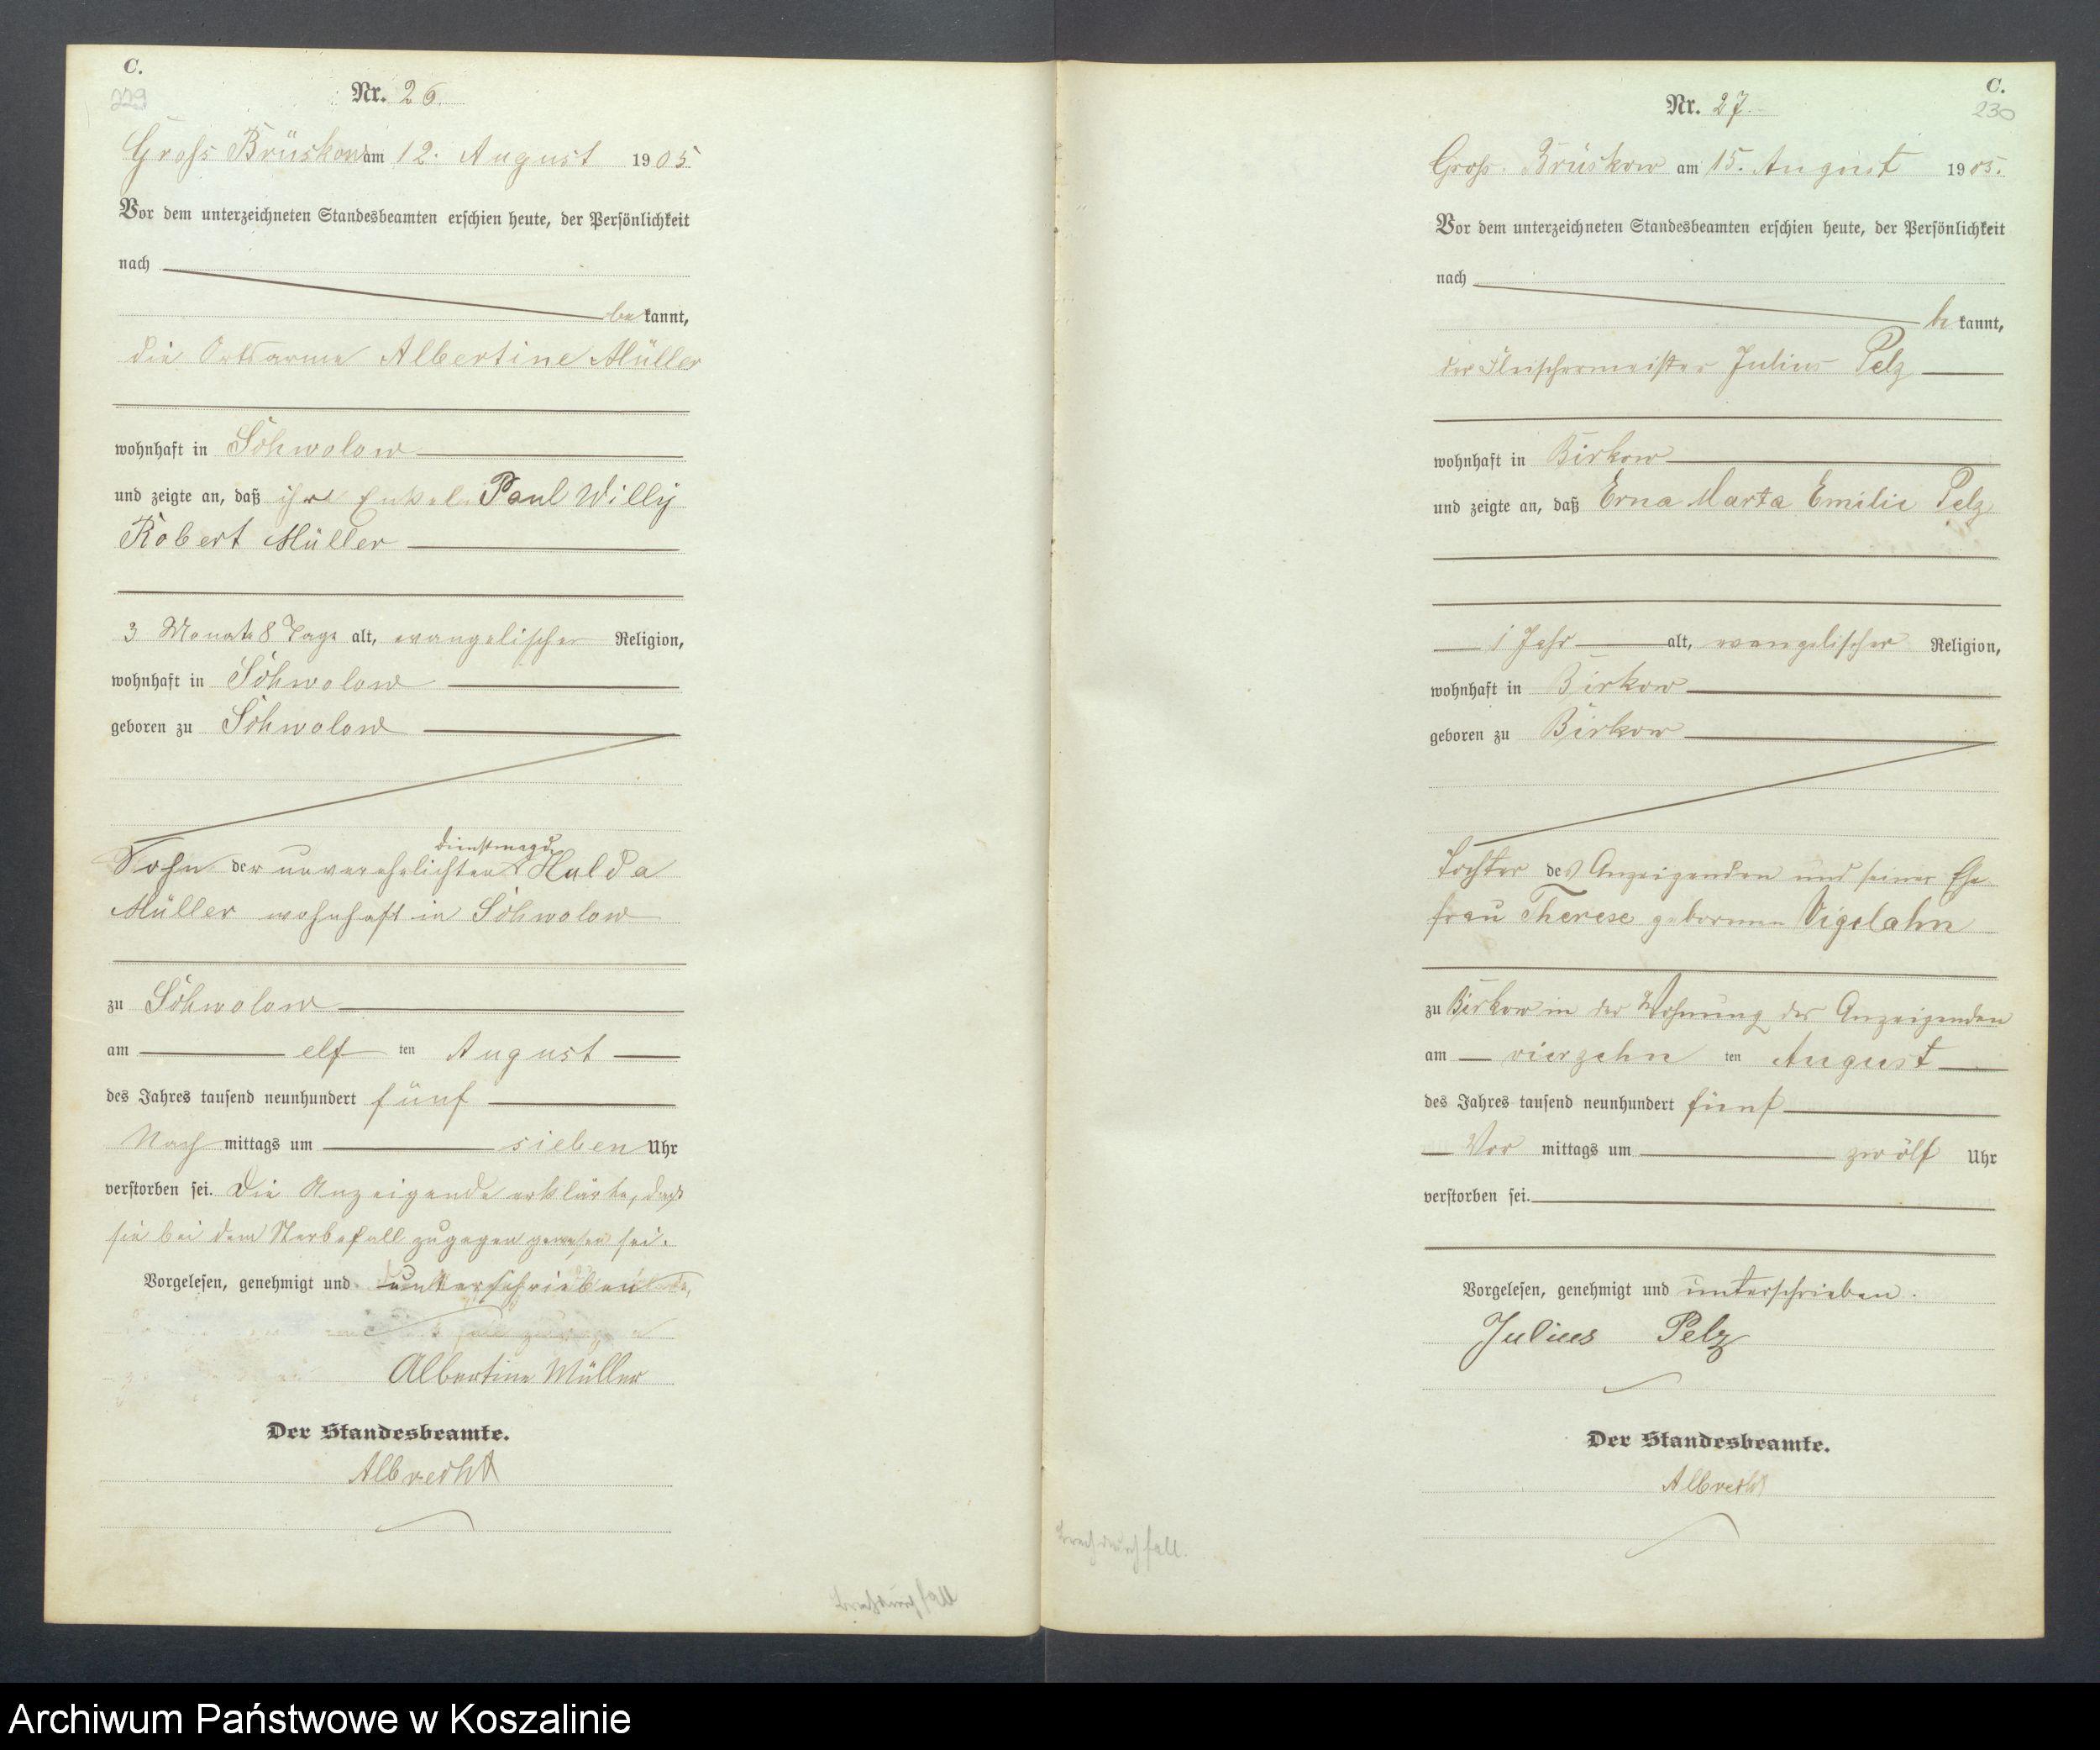 C.
229
Nr. 26.
Gross Brüskow am 12. August 1905
Vor dem unterzeichneten Standesbeamten erschien heute, der Persönlichkeit
nach
bekannt,
die Ortsarme Albertine Müller
wohnhaft in Schwolow
und zeigte an, daß ihr Enkel Paul Willy
Robert Müller
3 Monate 8 Tage alt, evangelischer Religion,
wohnhaft in Schwolow
geboren zu Schwolow
Dienstmagd
Sohn der unverehelichten Hulda
Müller wohnhaft in Schwolow
zu Schwolow
am elf ten August
des Jahres tausend neunhundert fünf
Nachmittags um sieben Uhr
verstorben sei. Die Anzeigende erklärte, dass
sie bei dem Sterbefall zugegen gewesen sei.
Vorgelesen, genehmigt und unterschrieben
Albertine Müller
Der Standesbeamte.
Albrecht
Brechdurchfall
C.
230
Nr. 27.
Gross Brüskow am 15. August 1905.
Vor dem unterzeichneten Standesbeamten erschien heute, der Persönlichkeit
nach
bekannt,
der Fleischermeister Julius Pelz
wohnhaft in Birkow
und zeigte an, daß Erna Marta Emilie Pelz
1 Jahr alt, evangelischer Religion,
wohnhaft in Birkow
geboren zu Birkow
Tochter des Anzeigenden und seiner Ehe
frau Therese geborenen Vigelahn
zu Birkow in der Wohnung des Anzeigenden
am vierzehn ten August
des Jahres tausend neunhundert fünf
Vormittags um zwölf Uhr
verstorben sei.
Vorgelesen, genehmigt und unterschrieben.
Julius Pelz
Der Standesbeamte.
Albrecht
Brechdurchfall.
Archiwum Państwowe w Koszalinie